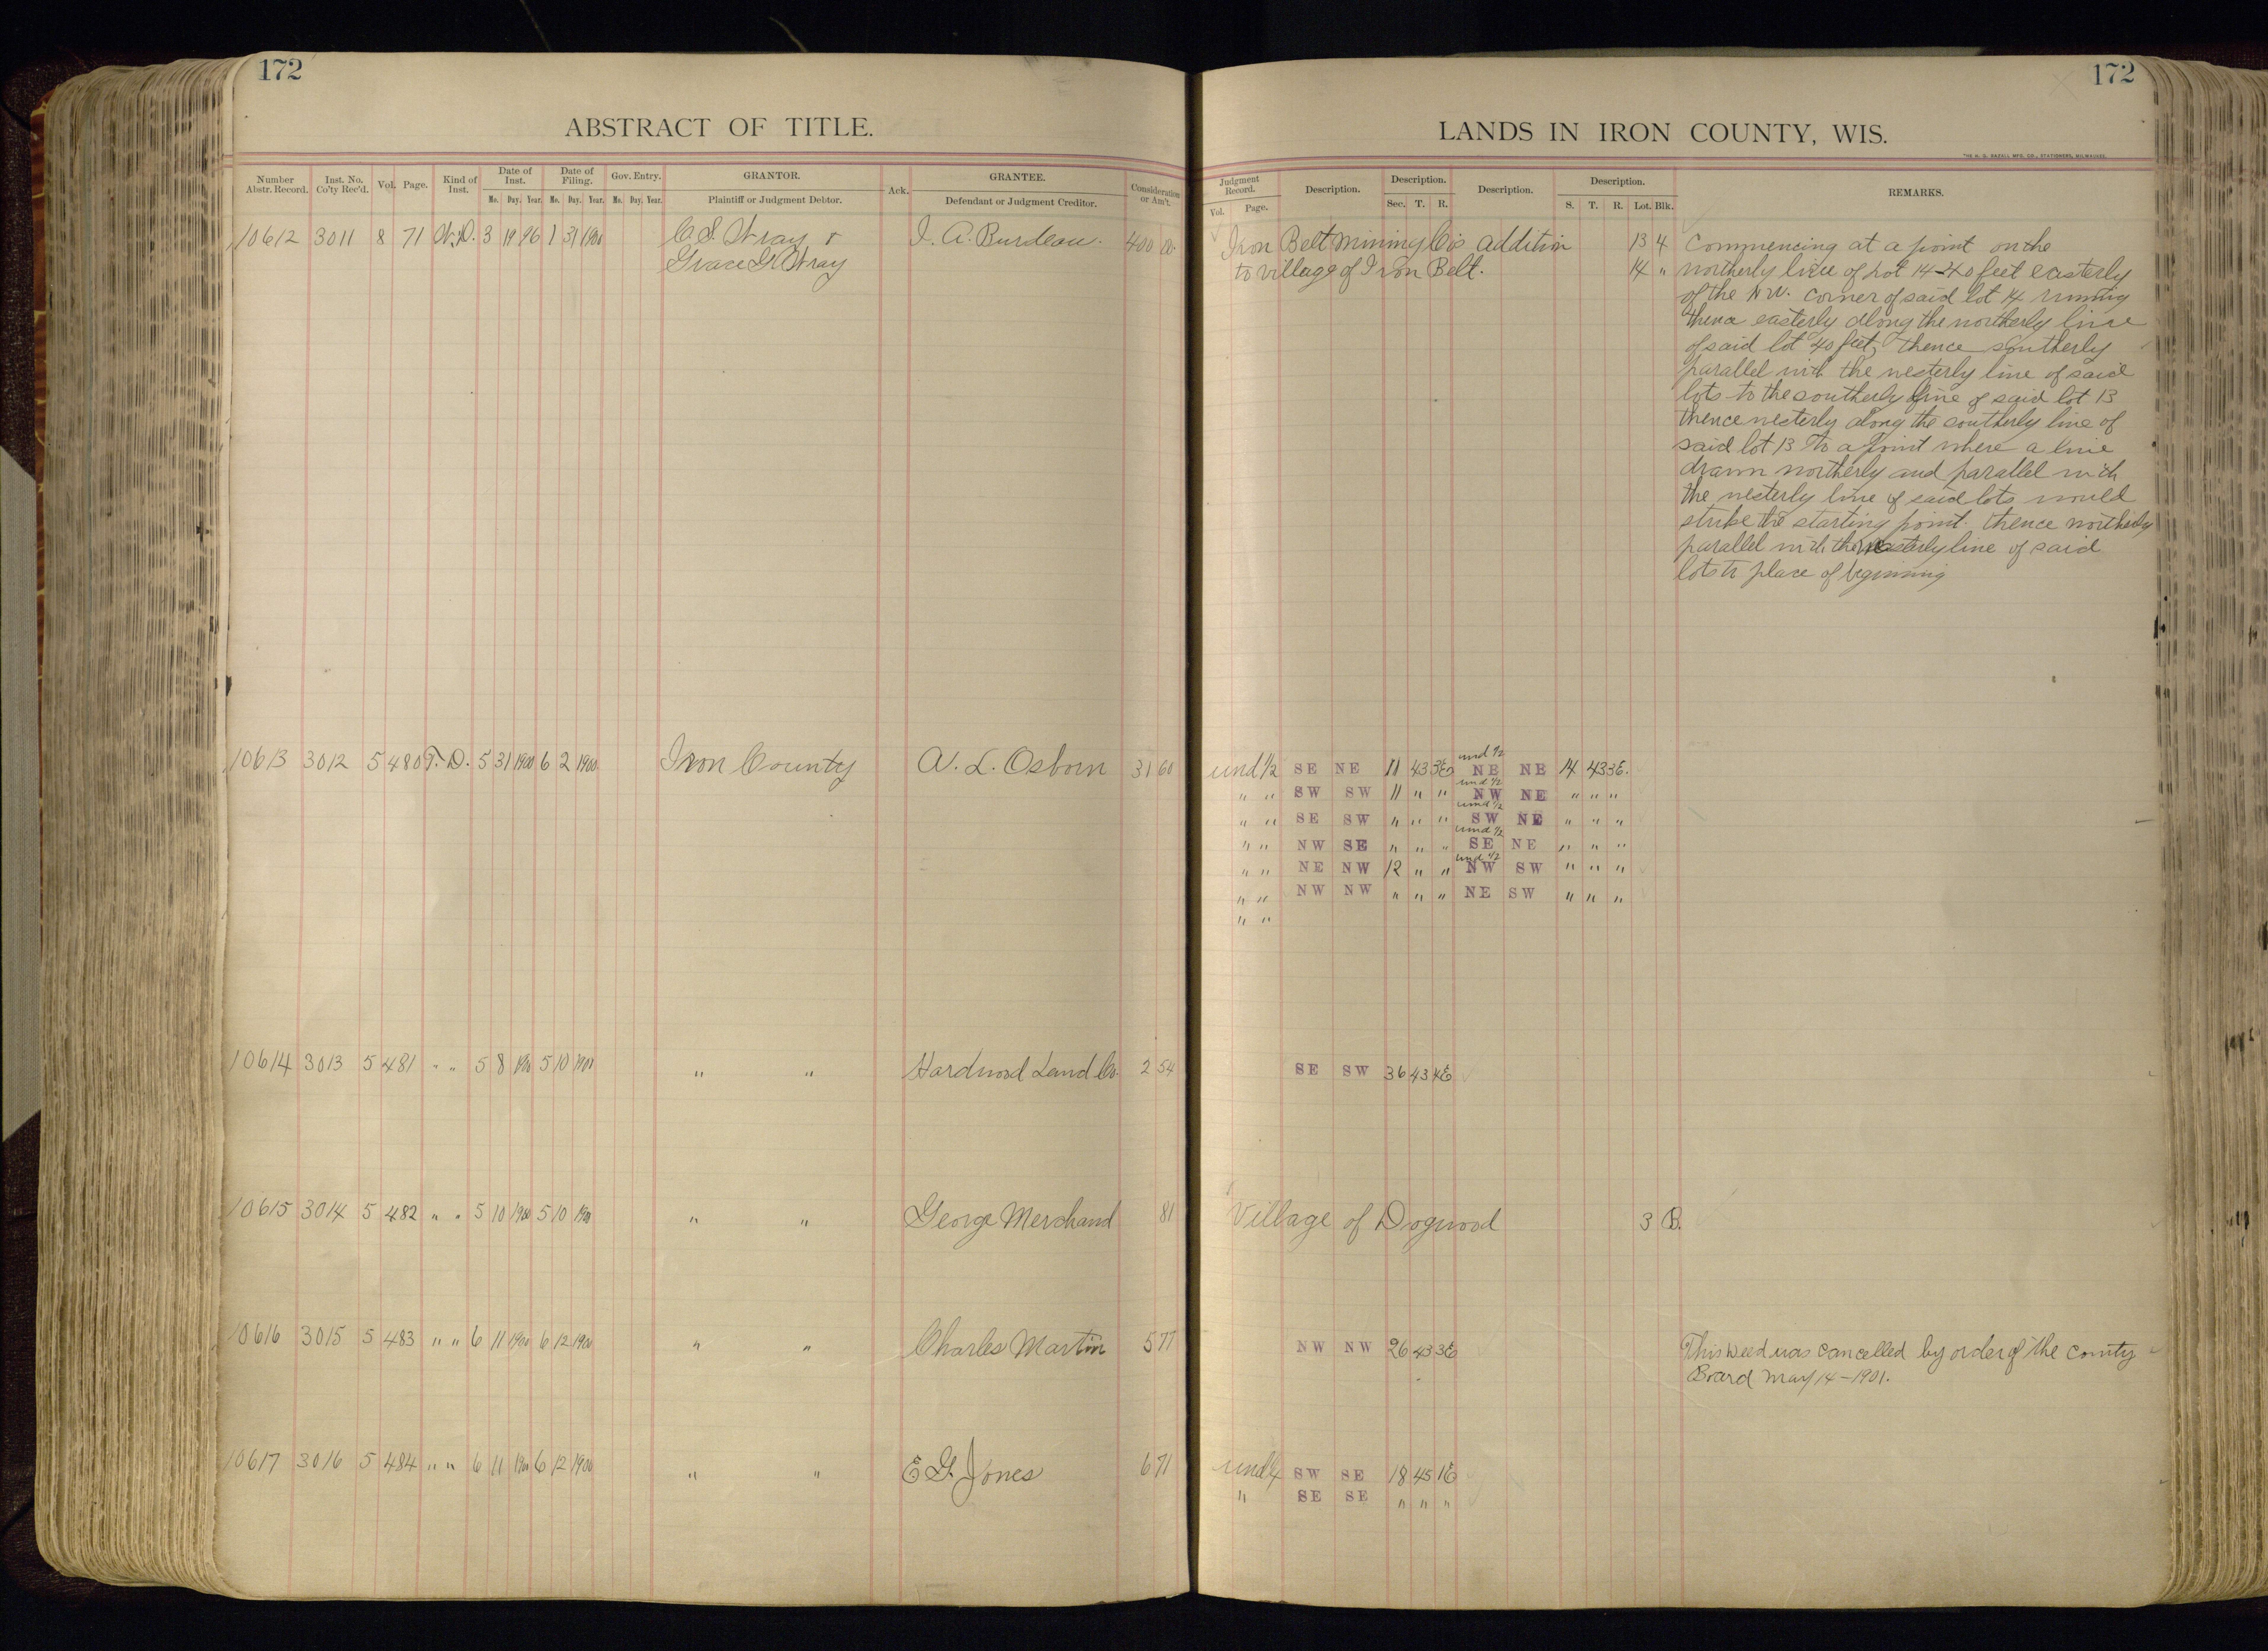 172
172
ABSTRACT OF TITLE.
LANDS IN IRON COUNTY, WIS.
THE H. G. RAZALL MFG. CO., STATIONERS, MILWAUKEE.
Number Abstr. Record. Inst. No. Co'ty Rec'd. Vol. Page. Kind of Inst. Date of Inst. Mo. Day. Year. Date of Filing. Mo. Day. Year. Gov. Entry. Mo. Day. Year. GRANTOR. Plaintiff or Judgment Debtor. Ack. GRANTEE. Defendant or Judgment Creditor. Consideration or Am't.
Judgment Record. Vol. Page. Description. Description. Sec. T. R. Description. Description. S. T. R. Lot. Blk. REMARKS.
10612 3011 8 71 W.D. 3 19 96 1 31 1900 C.S. Wray & I. A. Burdeau. 400 00
Grace G. Wray
Iron Belt Mining Co's addition 13 4
to village of Iron Belt. 14 "
Commencing at a point on the
northerly line of Lot 14 40 feet easterly
of the NW. corner of said lot 14 running
thence easterly along the northerly line
of said lot 40 feet, thence southerly
parallel with the westerly line of said
lots to the southerly line of said lot 13
thence westerly along the southerly line of
said lot 13 to a point where a line
drawn northerly and parallel with
the westerly line of said lots would
strike the starting point. thence northerly
parallel with the westerly line of said
lots to place of beginning
10613 3012 5 480 T.D. 5 31 1900 6 2 1900 Iron County A. L. Osborn 31 60
und 1/2 SE NE 11 43 3E und 1/2 NE NE 14 43 3E.
" " SW SW 11 " " und 1/2 NW NE " " "
" " SE SW " " " und 1/2 SW NE " " "
" " NW SE " " " und 1/2 SE NE " " "
" " NE NW 12 " " und 1/2 NW SW " " "
" " NW NW " " " NE SW " " "
" "
10614 3013 5 481 " " 5 8 1900 5 10 1900 " " Hardwood Land Co. 2 54
SE SW 36 43 4E
10615 3014 5 482 " " 5 10 1900 5 10 1900 " " George Merchand 81
Village of Dogwood 3 B.
10616 3015 5 483 " " 6 11 1900 6 12 1900 " " Charles Martin 5 77
NW NW 26 43 3E
This deed was cancelled by order of the county
Board May 14-1901.
10617 3016 5 484 " " 6 11 1900 6 12 1900 " " E G. Jones 6 71
und 1/4 SW SE 18 45 1E
" SE SE " " "